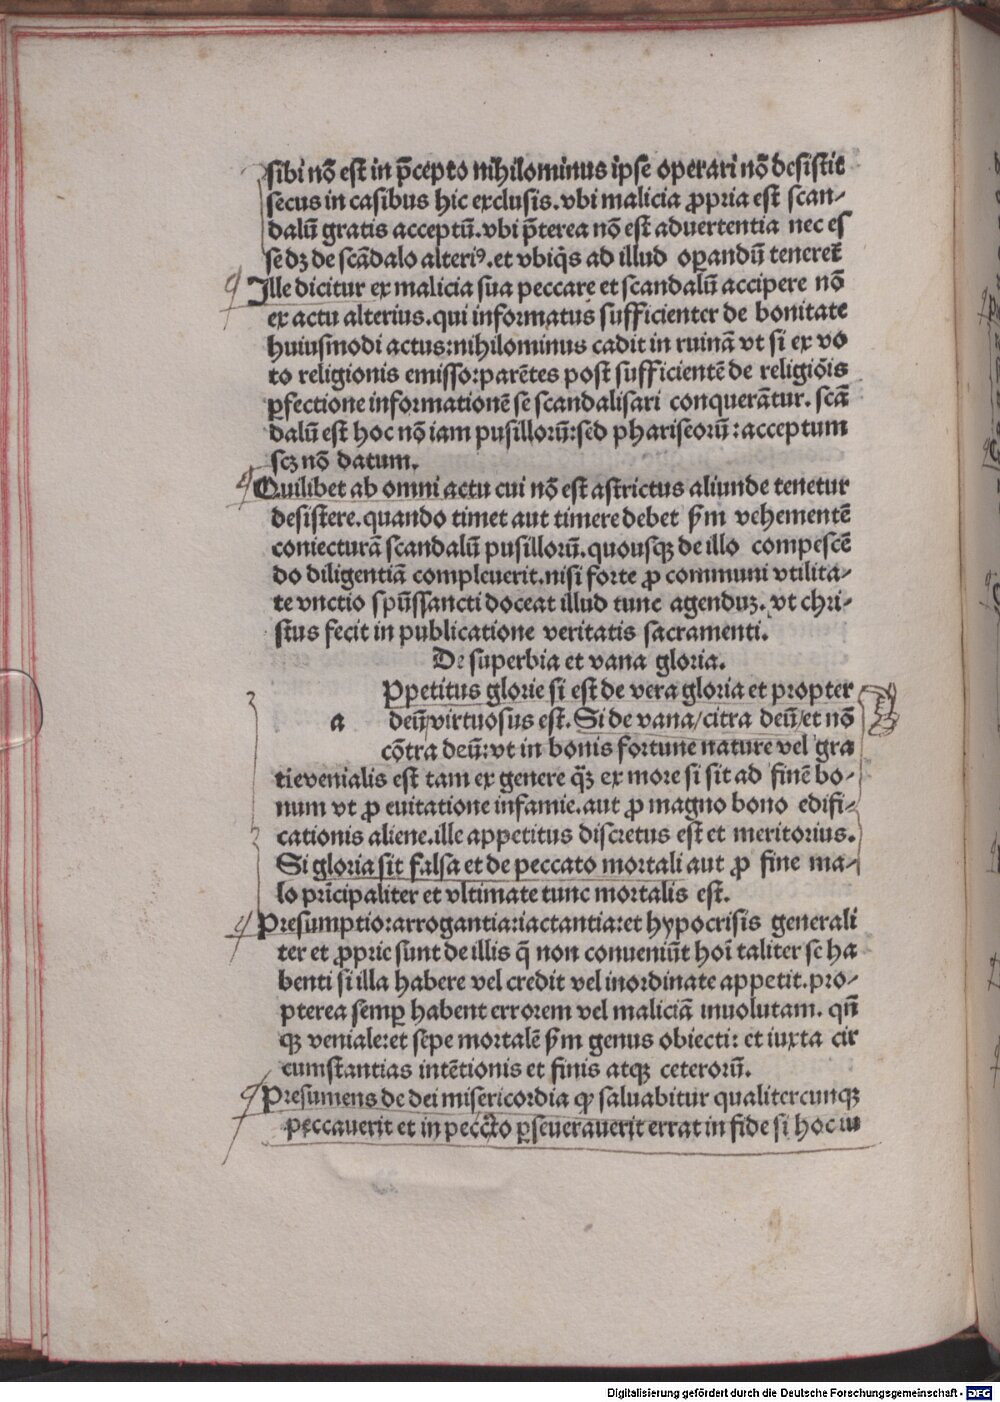 sibi nō est in p̄cepto nihilominus ipse operari nō desistit
secus in casibus hic exclusis. vbi malicia ꝓpria est scan-
dalū gratis acceptū. vbi p̄terea nō est aduertentia nec es
se dꝫ de scādalo alteriꝰ. et vbiq̄s ad illud oꝑandū teneret̄
Ille dicitur ex malicia sua peccare et scandalū accipere nō
ex actu alterius. qui informatus sufficienter de bonitate
huiusmodi actus: nihilominus cadit in ruinā vt si ex vo
to religionis emisso: parētes post sufficientē de religiōis
ꝑfectione informationē se scandalisari conquerātur. scā
dalū est hoc nō iam pusillorū: sed phariseorū: acceptum
scꝫ nō datum.
Quilibet ab omni actu cui nō est astrictus aliunde tenetur
desistere. quando timet aut timere debet ẜm vehementē
coniecturā scandalū pusillorū. quousqꝫ de illo compescē
do diligentiā compleuerit. nisi forte ꝓ communi vtilita-
te vnctio spūssancti doceat illud tunc agenduꝫ. vt chri-
stus fecit in publicatione veritatis sacramenti.
De superbia et vana gloria.
a
Ppetitus glorie si est de vera gloria et propter
deū/virtuosus est. Si de vana/citra deū/et nō
cōtra deū: vt in bonis fortune nature vel gra
tie venialis est tam ex genere q̄ꝫ ex more si sit ad finē bo-
num vt ꝓ euitatione infamie. aut ꝓ magno bono edifi-
cationis aliene. ille appetitus discretus est et meritorius.
Si gloria sit falsa et de peccato mortali aut ꝓ fine ma-
lo prīcipaliter et vltimate tunc mortalis est.
Presumptio: arrogantia: iactantia: et hypocrisis generali
ter et ꝓprie sunt de illis q̄ non conueniūt hoī taliter se ha
benti si illa habere vel credit vel inordinate appetit. pro-
pterea semꝑ habent errorem vel maliciā inuolutam. qn̄
qꝫ veniale: et sepe mortalē ẜm genus obiecti: et iuxta cir
cumstantias intētionis et finis atqꝫ ceterorū.
Presumens de dei misericordia ꝙ saluabitur qualitercunqꝫ
peccauerit et in pecc̄to ꝑseuerauerit errat in fide si hoc iu
Digitalisierung gefördert durch die Deutsche Forschungsgemeinschaft - DFG